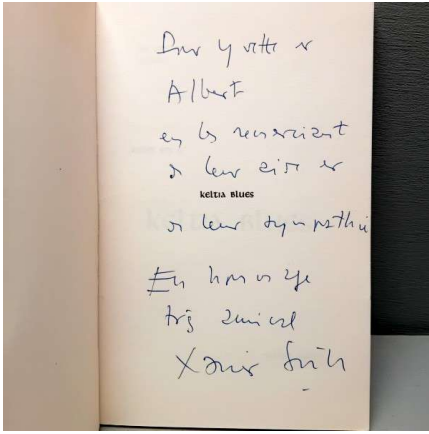 Pour Yvette et
Albert
en les remerciant
de leur aide et
KELTIA BLUES
de leur sympathie
En hommage
très amical
Xavier